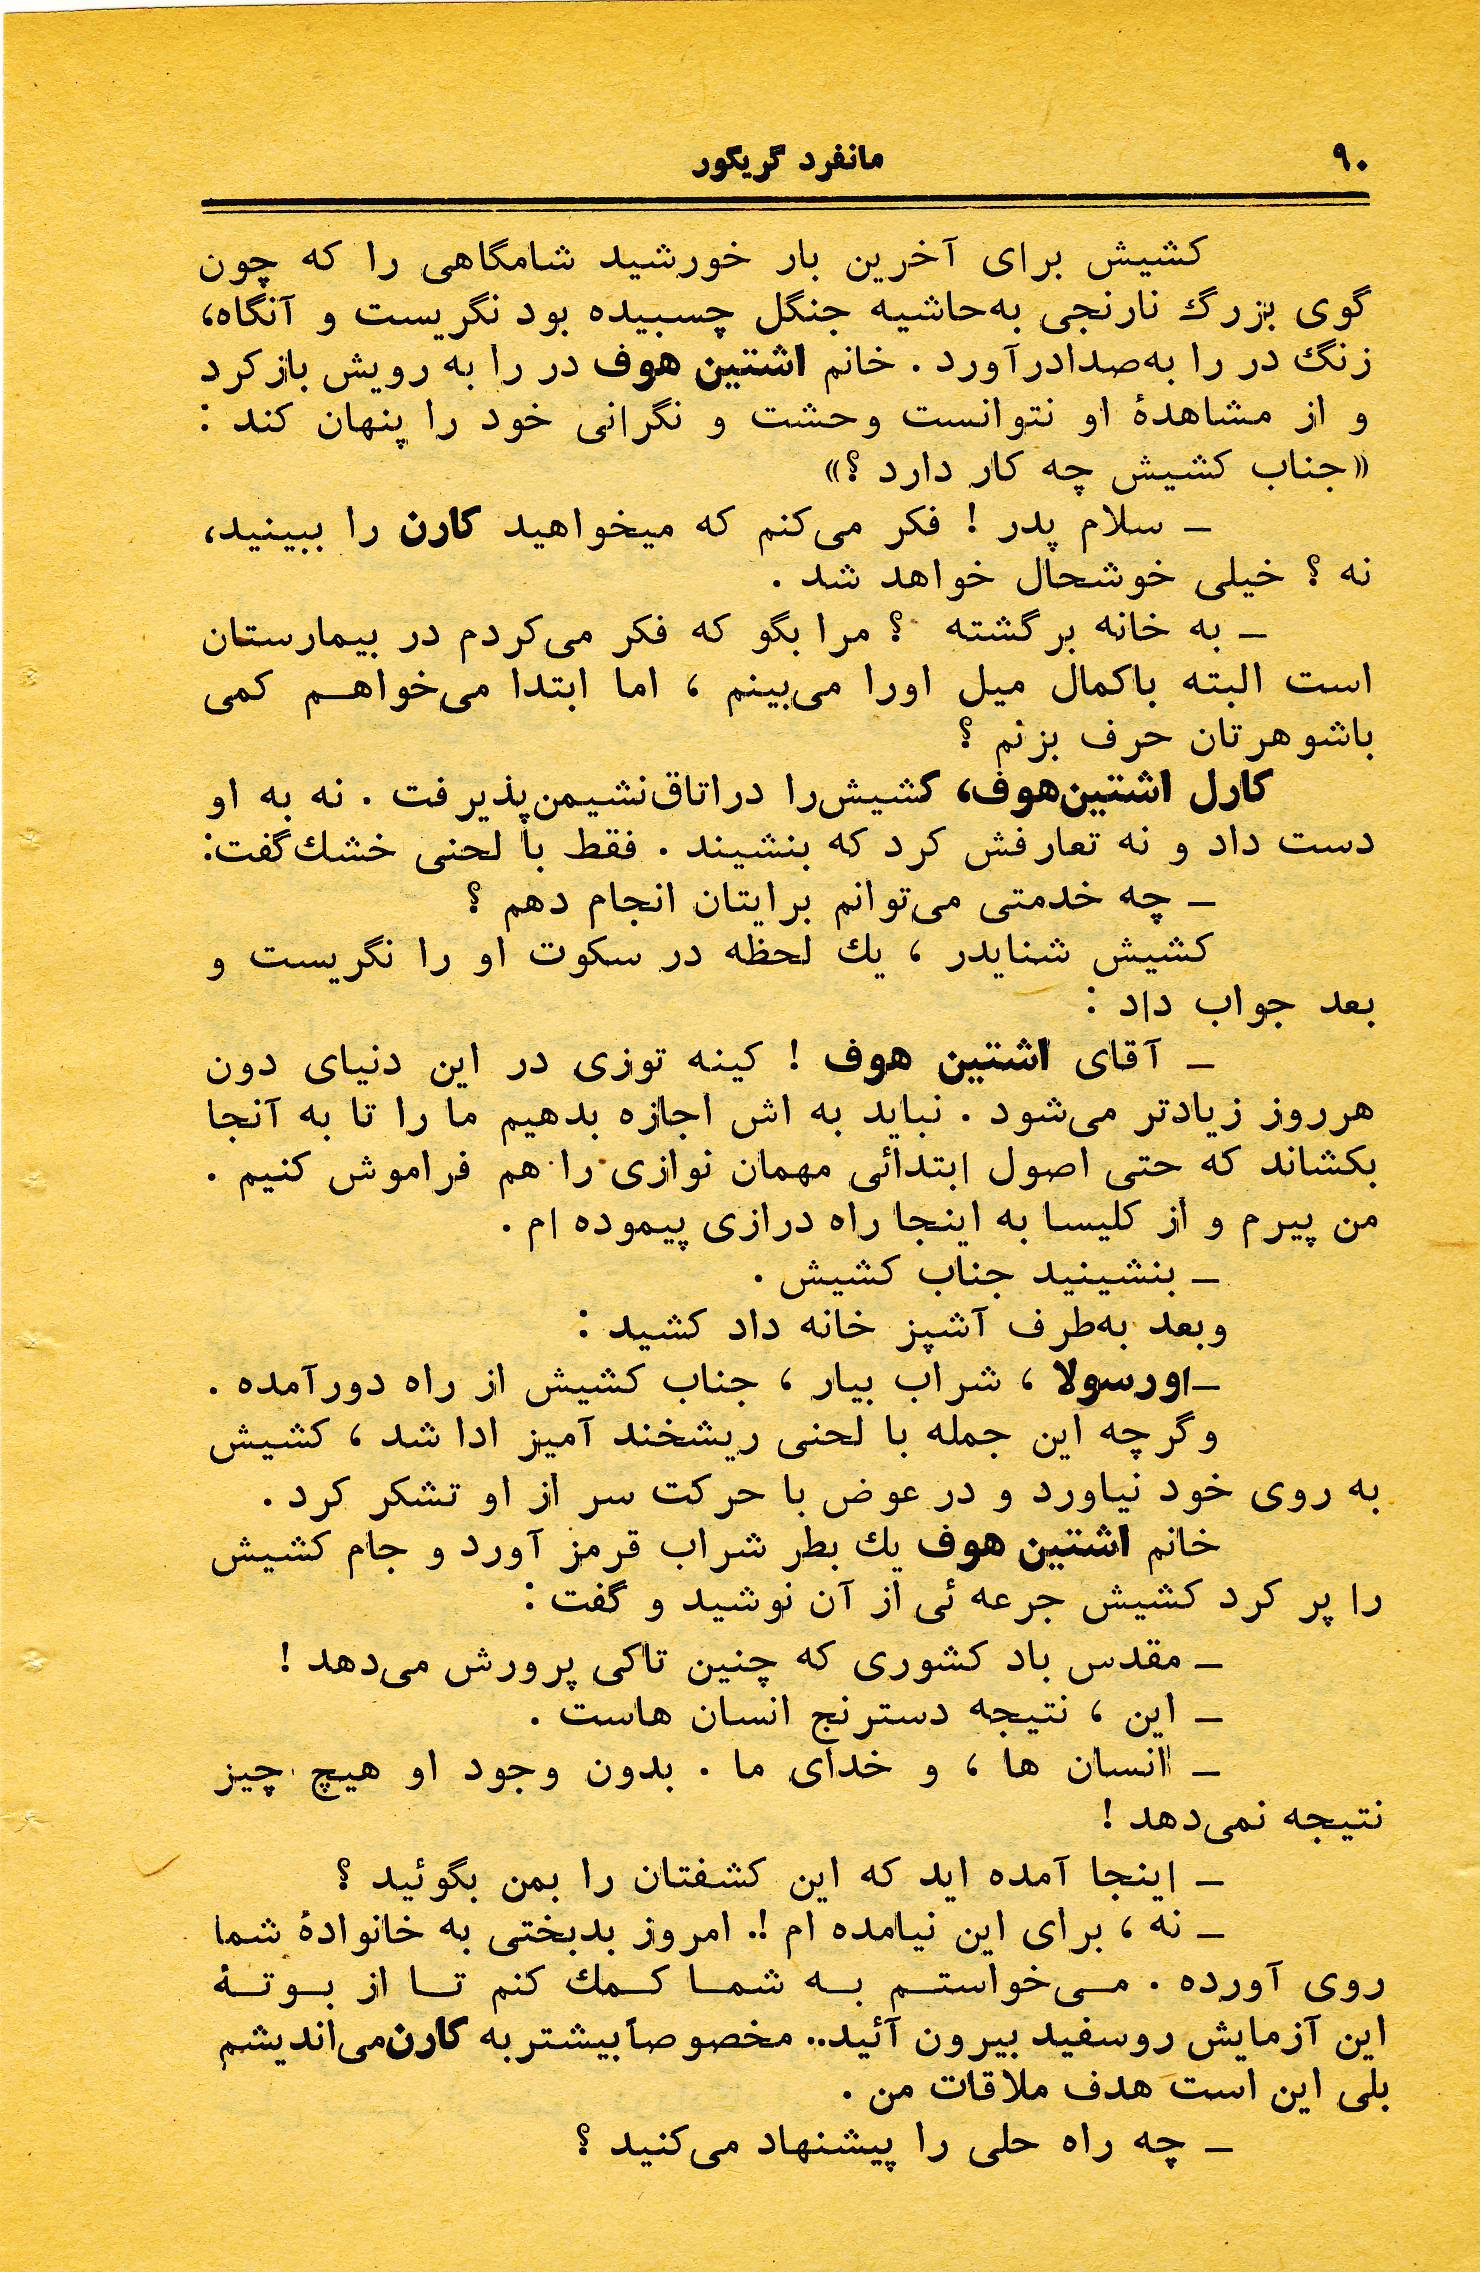 ۹۰
مانفرد گریگور
کشیش برای آخرین بار خورشید شامگاهی را که چون
گوی بزرگ نارنجی به‌حاشیه جنگل چسبیده بود نگریست و آنگاه،
زنگ در را به‌صدادرآورد . خانم اشتین هوف در را به رویش بازکرد
و از مشاهدهٔ او نتوانست وحشت و نگرانی خود را پنهان کند :
«جناب کشیش چه کار دارد ؟»
ــ سلام پدر ! فکر می‌کنم که میخواهید کارن را ببینید،
نه ؟ خیلی خوشحال خواهد شد .
ــ به خانه برگشته ؟ مرا بگو که فکر می‌کردم در بیمارستان
است البته باکمال میل اورا می‌بینم ، اما ابتدا می‌خواهم کمی
باشوهرتان حرف بزنم ؟
کارل اشتین‌هوف، کشیش‌را دراتاق‌نشیمن‌پذیرفت . نه به او
دست داد و نه تعارفش کرد که بنشیند . فقط با لحنی خشك‌گفت:
ــ چه خدمتی می‌توانم برایتان انجام دهم ؟
کشیش شنایدر ، یك لحظه در سکوت او را نگریست و
بعد جواب داد :
ــ آقای اشتین هوف ! کینه توزی در این دنیای دون
هرروز زیادتر می‌شود . نباید به اش اجازه بدهیم ما را تا به آنجا
بکشاند که حتی اصول ابتدائی مهمان نوازی را هم فراموش کنیم .
من پیرم و از کلیسا به اینجا راه درازی پیموده ام .
ــ بنشینید جناب کشیش .
وبعد به‌طرف آشپز خانه داد کشید :
ــاورسولا ، شراب بیار ، جناب کشیش از راه دورآمده .
وگرچه این جمله با لحنی ریشخند آمیز ادا شد ، کشیش
به روی خود نیاورد و در عوض با حرکت سر از او تشکر کرد .
خانم اشتین هوف یك بطر شراب قرمز آورد و جام کشیش
را پر کرد کشیش جرعه ئی از آن نوشید و گفت :
ــ مقدس باد کشوری که چنین تاکی پرورش می‌دهد !
ــ این ، نتیجه دسترنج انسان هاست .
ــ انسان ها ، و خدای ما . بدون وجود او هیچ چیز
نتیجه نمی‌دهد !
ــ اینجا آمده اید که این کشفتان را بمن بگوئید ؟
ــ نه ، برای این نیامده ام !. امروز بدبختی به خانوادهٔ شما
روی آورده . می‌خواستم به شما کمك کنم تا از بوتهٔ
این آزمایش روسفید بیرون آئید.. مخصوصاً بیشتر به کارن‌می‌اندیشم
بلی این است هدف ملاقات من .
ــ چه راه حلی را پیشنهاد می‌کنید ؟